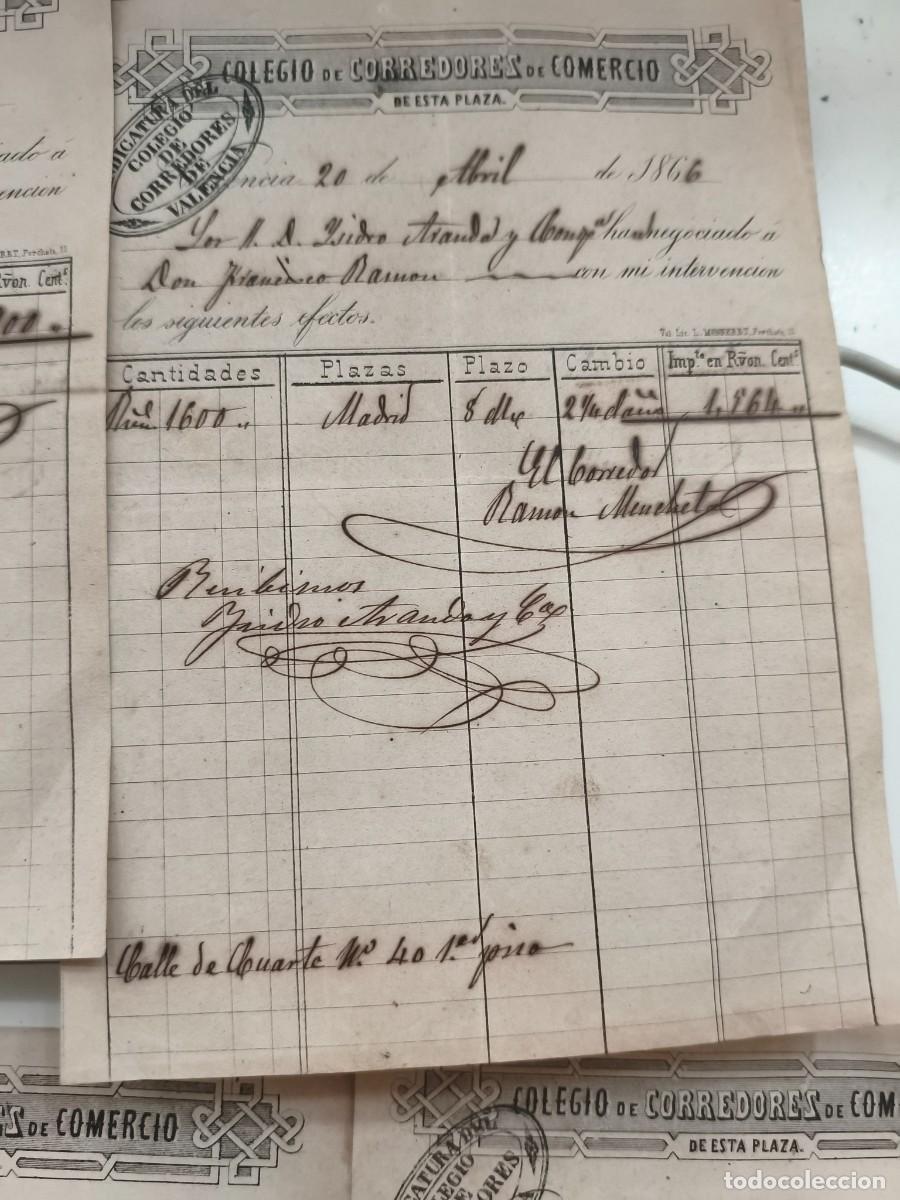 COLEGIO DE CORREDORES DE COMERCIO
DE ESTA PLAZA.
DICATURA DEL
COLEGIO
DE
CORREDORES
DE
VALENCIA
encia 20 de Abril de 1866
Los S. D. Ysidro Aranda y Compª han negociado á
Don Francisco Ramon con mi intervencion
los siguientes efectos.
Cantidades Plazas Plazo Cambio Imp.te en Rvon. Cent.s
1600 Madrid 8 2 1/4 daño
El Corredor
Ramon
Recibimos
Ysidro Aranda y Cª
Calle de Cuarte Nº 40 1er piso
iado á
encion
Rvon. Cent.s
S DE COMERCIO
COLEGIO DE CORREDORES DE COM
DE ESTA PLAZA.
CATURA DEL
COLEGIO
DE
todocoleccion